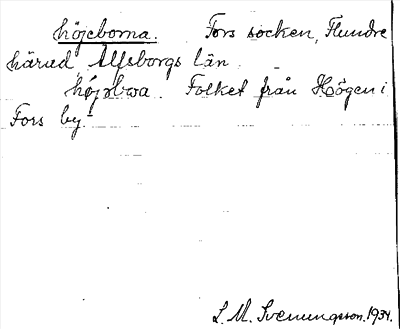 höjeborna. Fors socken, Flundre
härad, Älfsborgs län.
höjobwa. Folket från Högen i
Fors by.
L. M. Svenungsson. 1934.